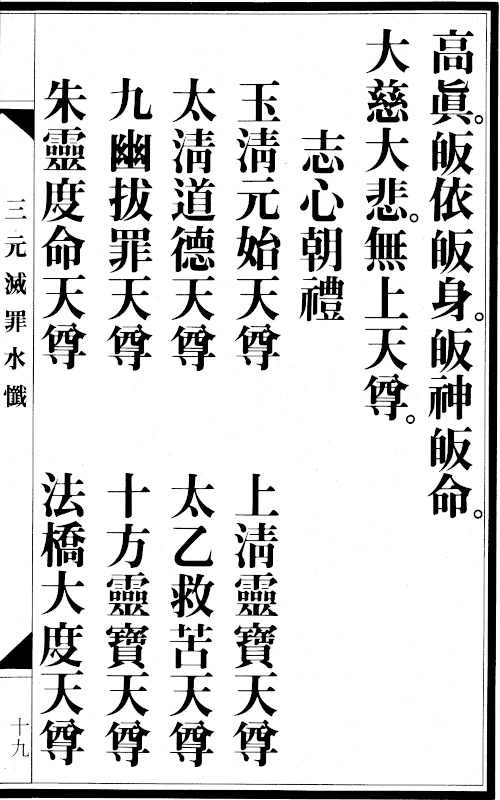 高眞。皈依皈身。皈神皈命。
大慈大悲。無上天尊。
志心朝禮
玉淸元始天尊　上淸靈寶天尊
太淸道德天尊　太乙救苦天尊
九幽拔罪天尊　十方靈寶天尊
朱靈度命天尊　法橋大度天尊
三元滅罪水懺
十九